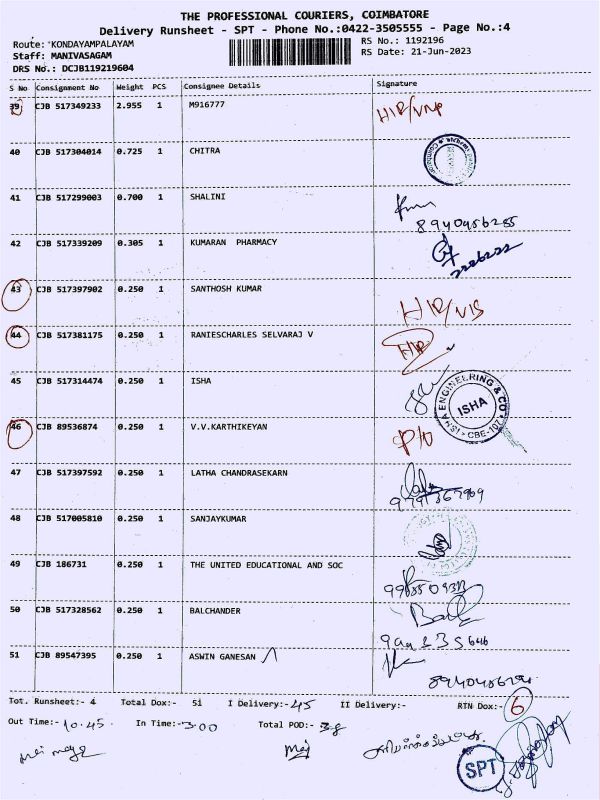 THE PROFESSIONAL COURIERS, COIMBATORE
Delivery Runsheet - SPT - Phone No.:0422-3505555 - Page No.:4
Route: 'KONDAYAMPALAYAM
RS No.: 1192196
Staff: MANIVASAGAM
RS Date: 21-Jun-2023
DRS No.: DCJB119219604
S No Consignment No Weight PCS Consignee Details Signature
39 CJB 517349233 2.955 1 M916777
40 CJB 517304014 0.725 1 CHITRA
41 CJB 517299003 0.700 1 SHALINI
8940486285
42 CJB 517339209 0.305 1 KUMARAN PHARMACY
43 CJB 517397902 0.250 1 SANTHOSH KUMAR
44 CJB 517381175 0.250 1 RANIESCHARLES SELVARAJ V
45 CJB 517314474 0.250 1 ISHA
ISHA ENGINEERING & CO
ISHA
CBE-107
46 CJB 89536874 0.250 1 V.V.KARTHIKEYAN
47 CJB 517397592 0.250 1 LATHA CHANDRASEKARN
48 CJB 517005810 0.250 1 SANJAYKUMAR
49 CJB 186731 0.250 1 THE UNITED EDUCATIONAL AND SOC
50 CJB 517328562 0.250 1 BALCHANDER
51 CJB 89547395 0.250 1 ASWIN GANESAN
Tot. Runsheet:- 4 Total Dox:- 51 I Delivery:- 45 II Delivery:- RTN Dox:- 6
Out Time:- 10.45. In Time:- 3.00 Total POD:- 38
SPT